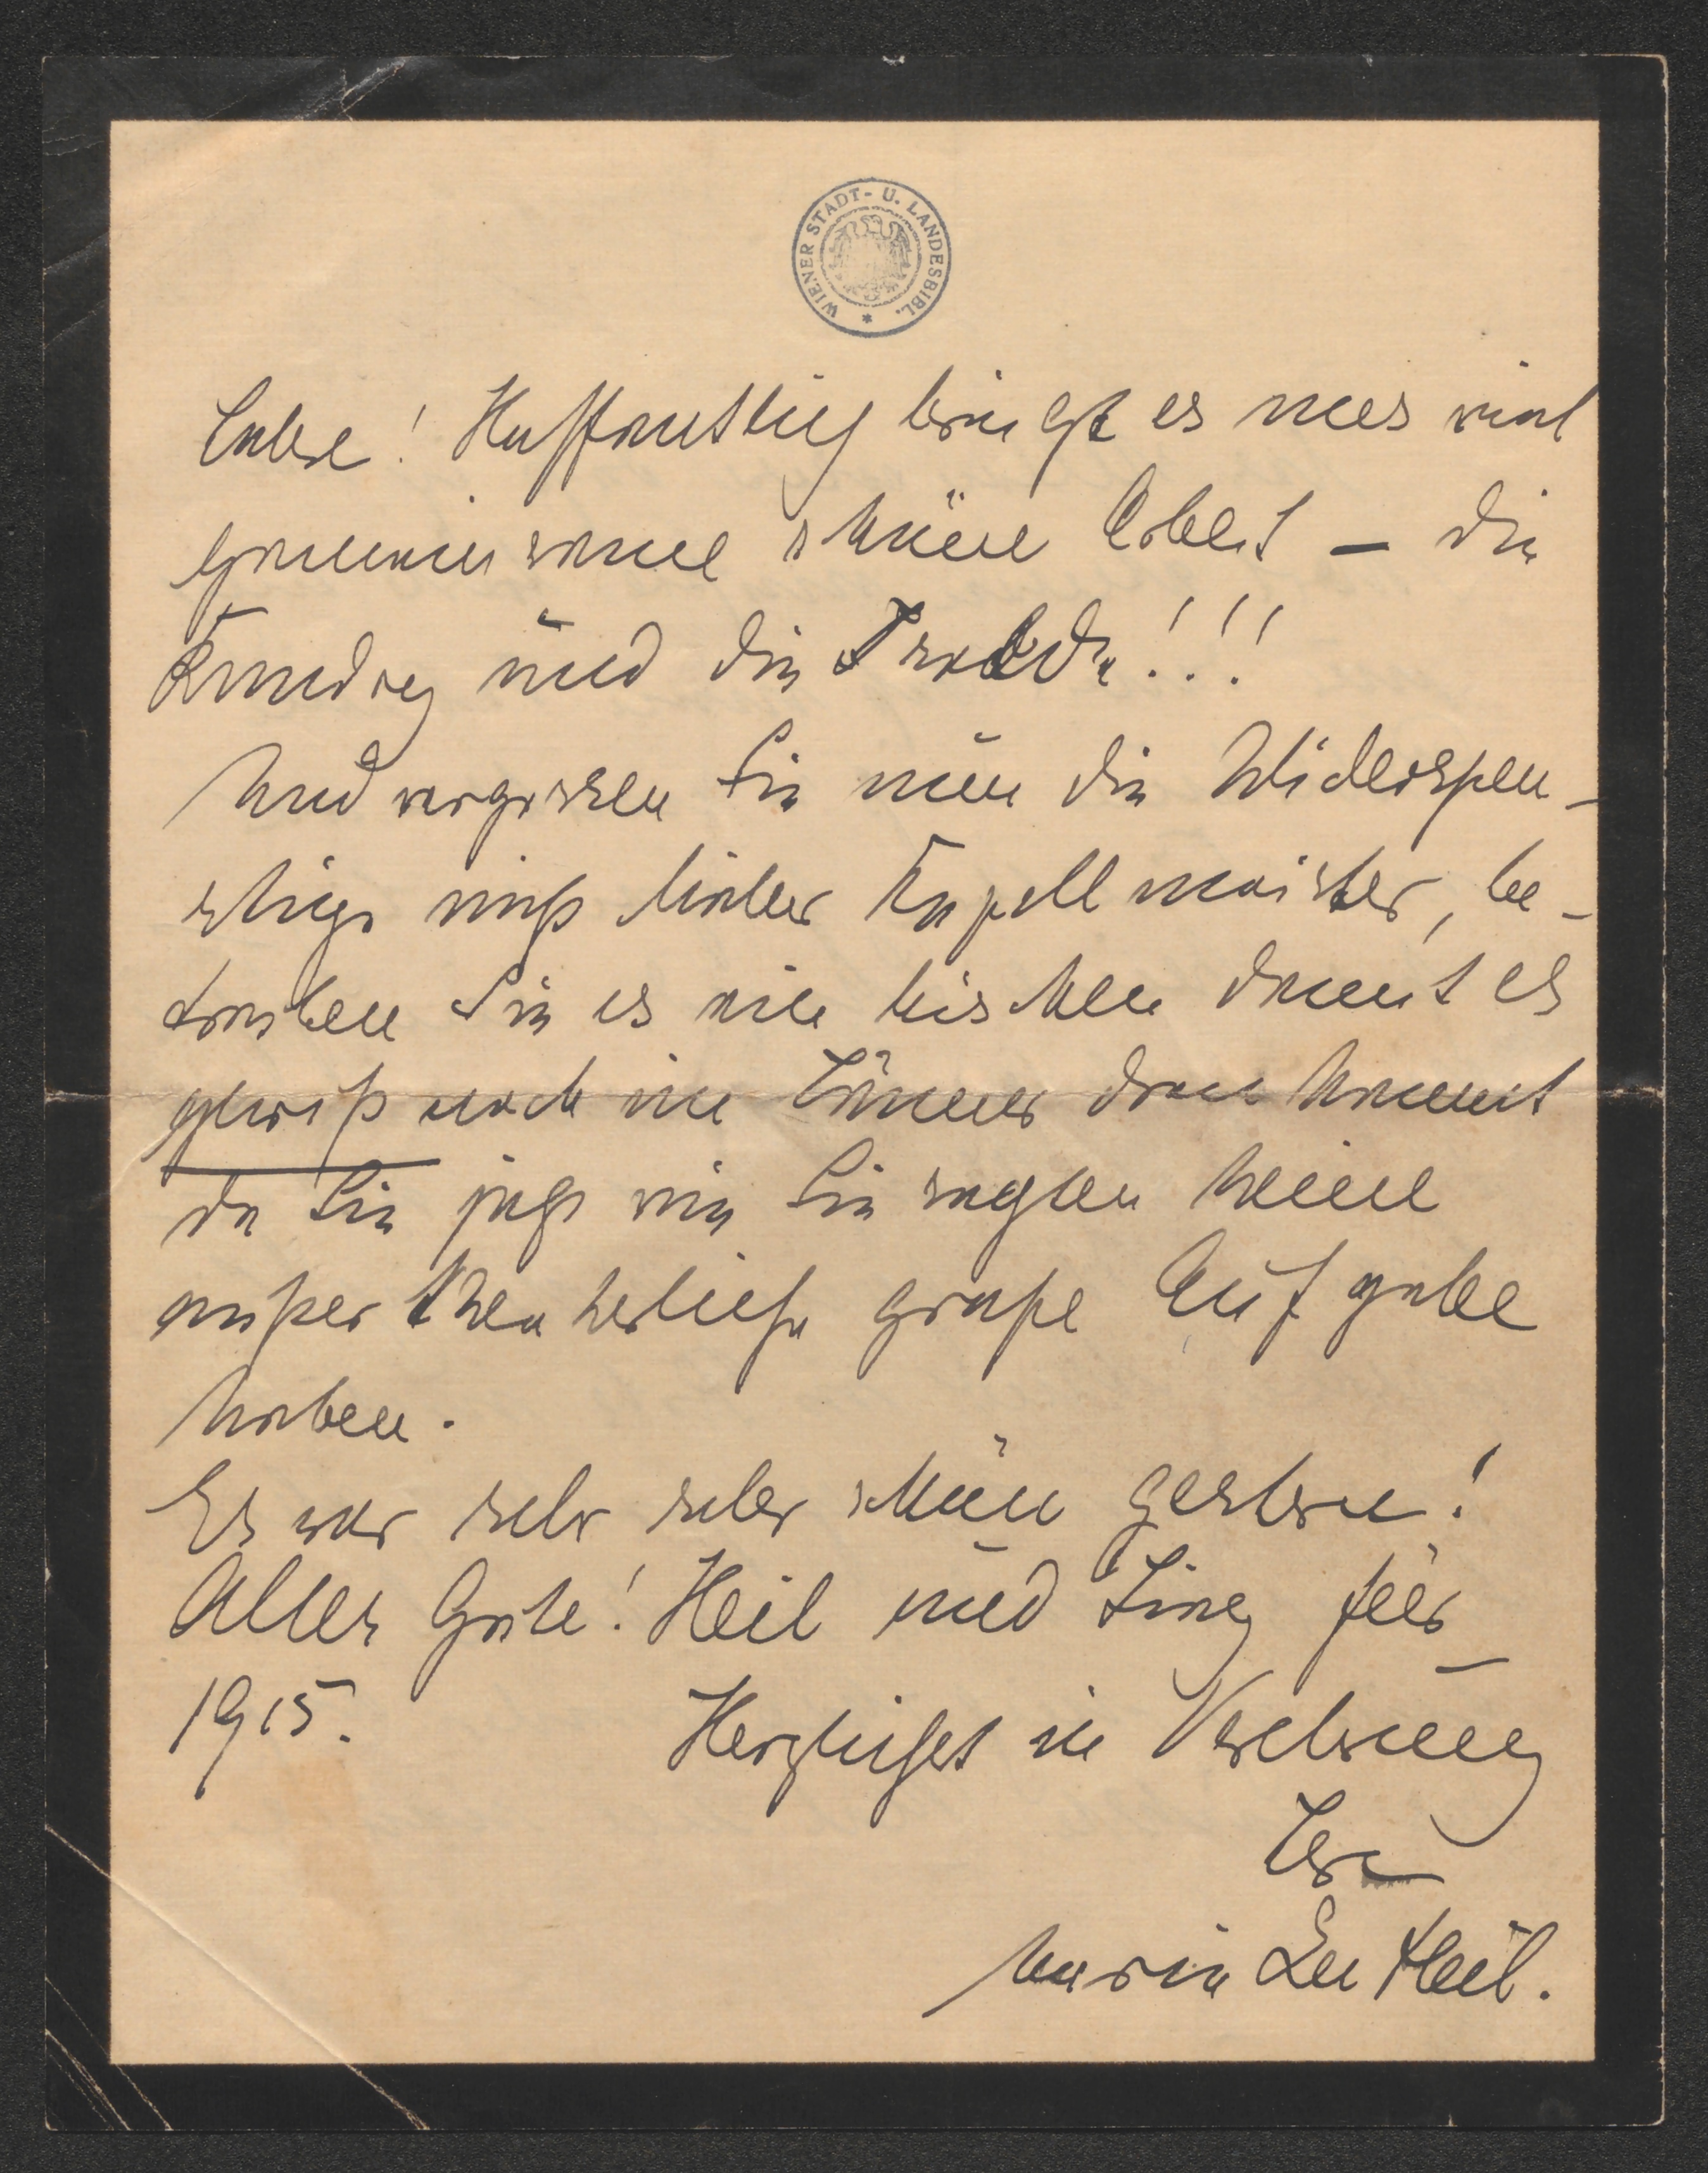 WIENER STADT- U. LANDESBIBL.
Liebe! Hoffentlich bringt es uns viel
gemeinsame schöne Arbeit – die
Kundry und die Isolde!!!
Und vergessen Sie nun die Widerspen-
stige nicht lieber Kapellmeister, be-
treiben Sie es ein bischen damit es
gewiß noch im Jänner dran kommt
da Sie ja wie Sie sagten keine
außertheaterliche große Aufgabe
haben.
Es war sehr sehr schön gestern!
Alles Gute! Heil und Sieg für
1915.
Herzlichst in Verehrung
Ihre
Marie Gutheil.